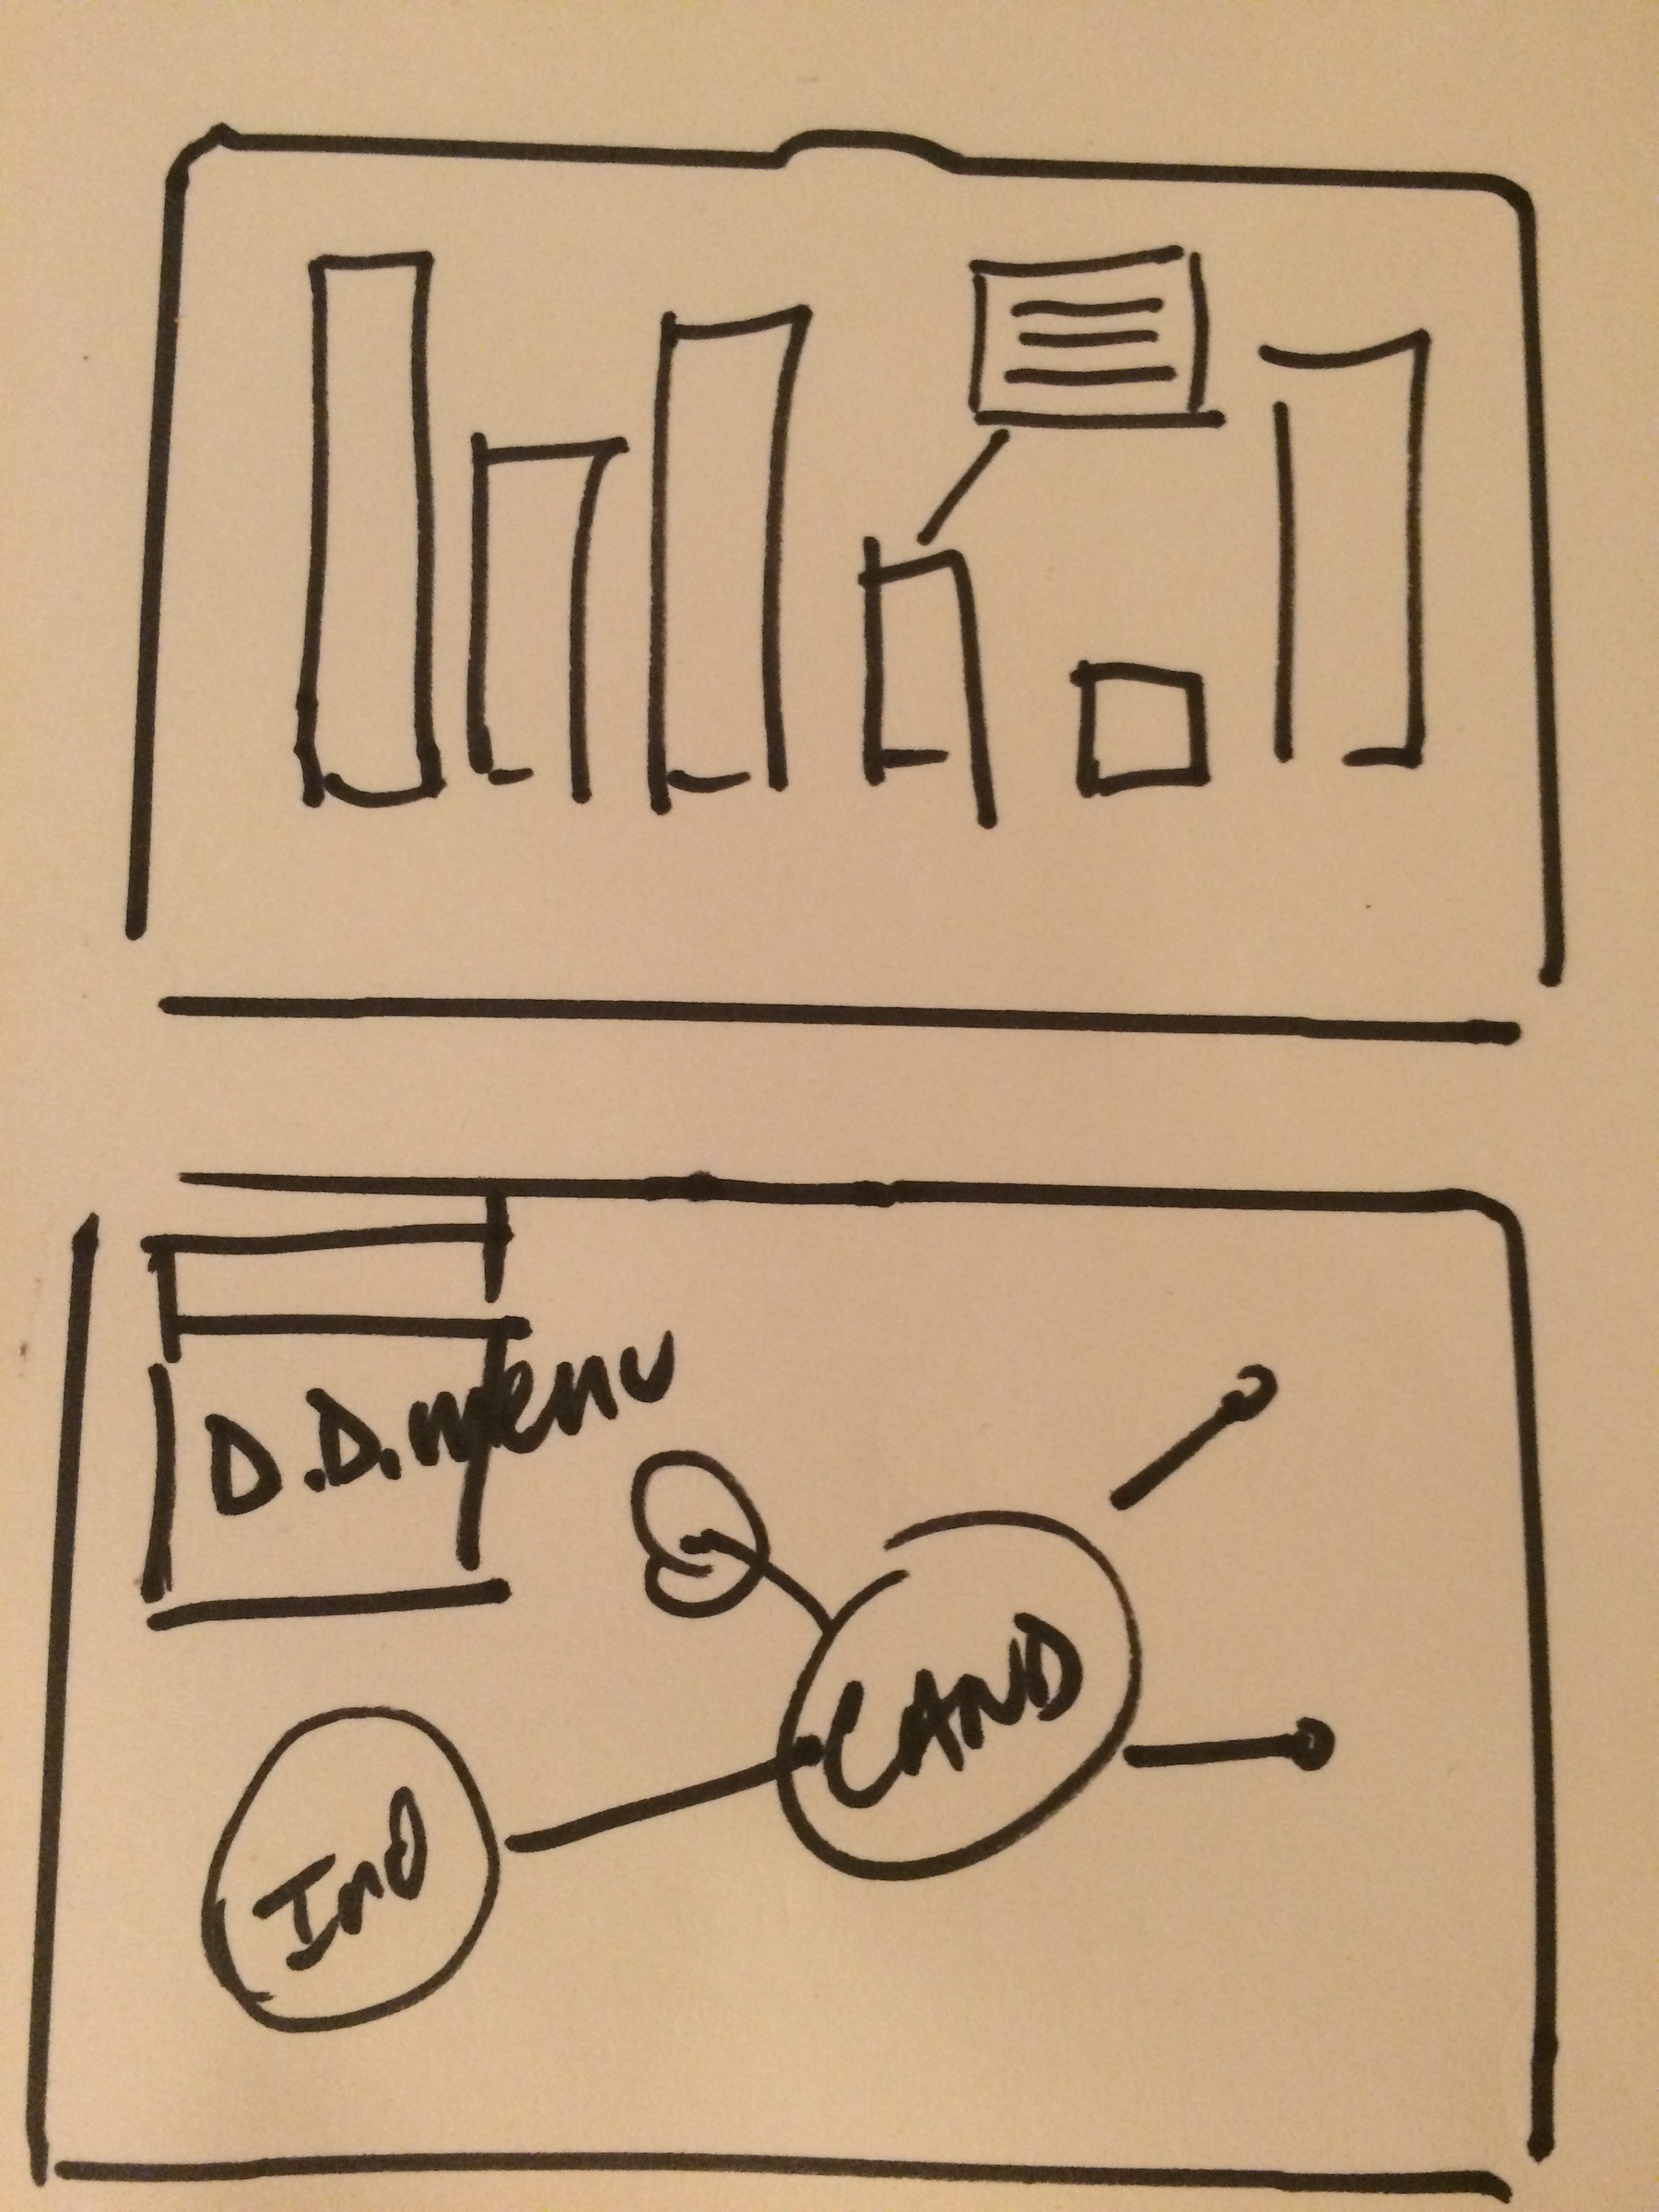 D.D.menu
CAND
IND